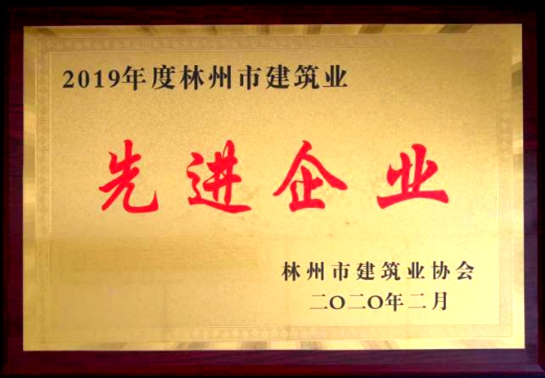 2019年度林州市建筑业
先进企业
林州市建筑业协会
二〇二〇年二月